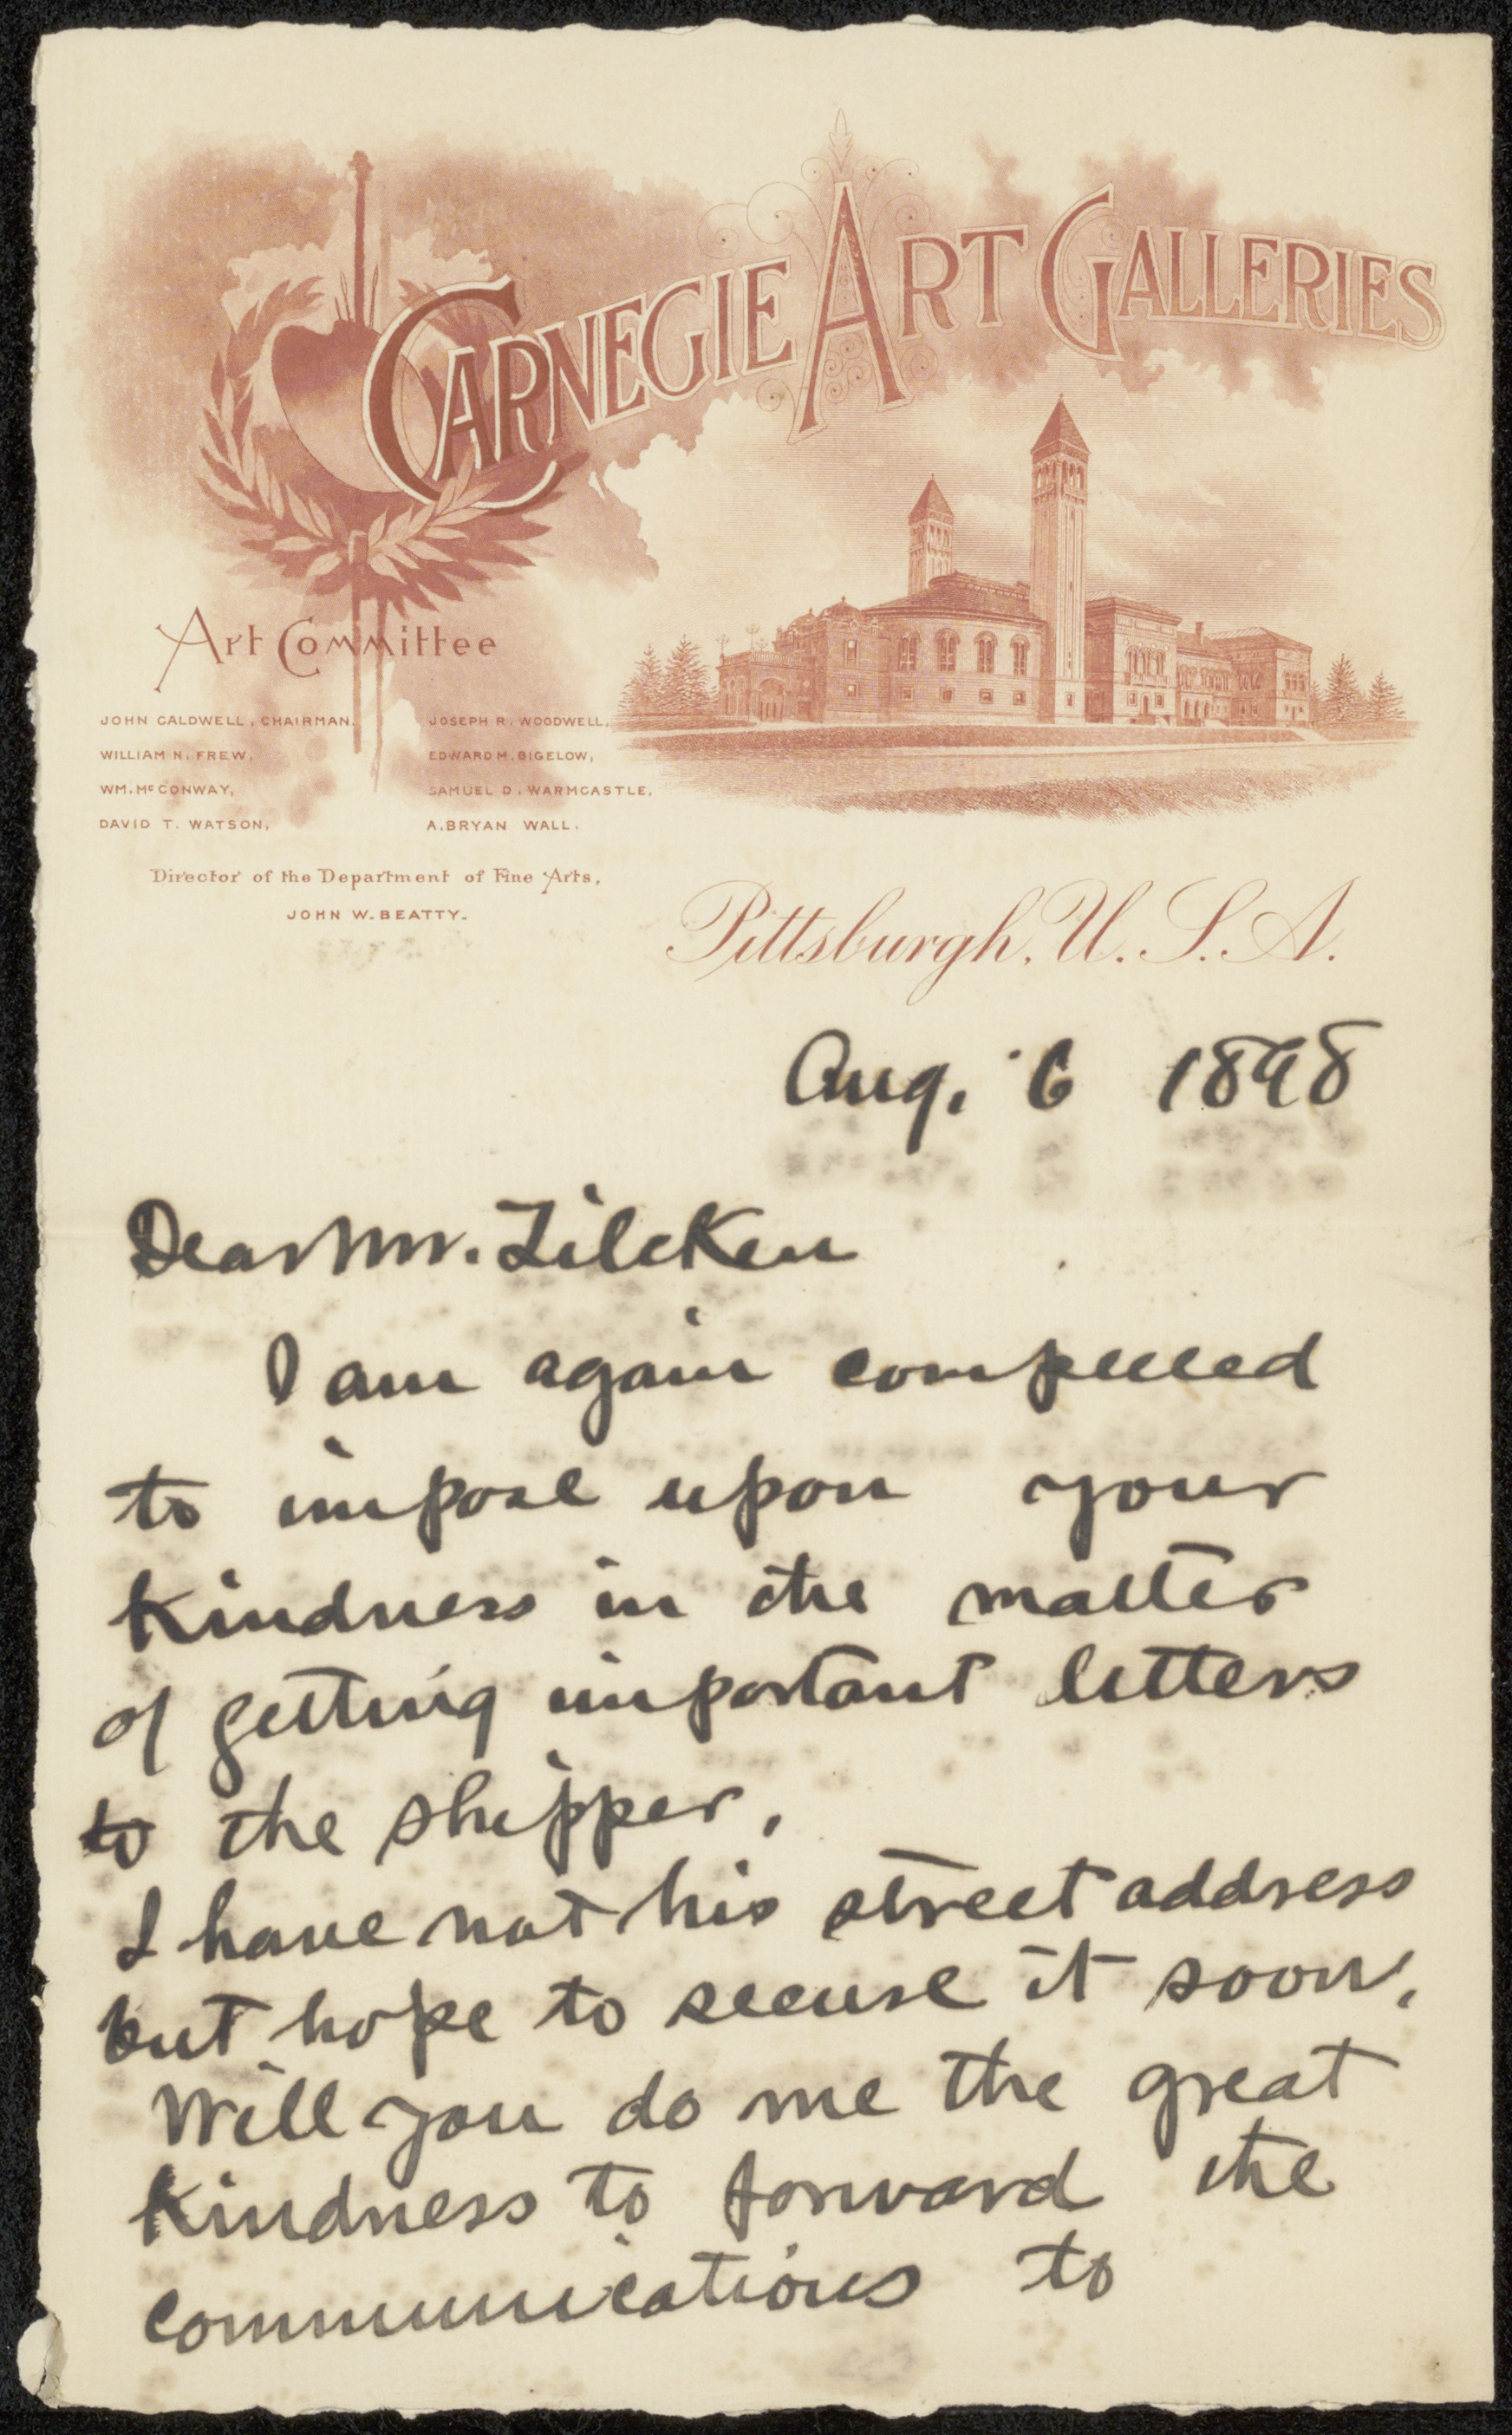 CARNEGIE ART GALLERIES
Art Committee
JOHN CALDWELL, CHAIRMAN.
WILLIAM N. FREW,
WM. McCONWAY,
DAVID T. WATSON,
JOSEPH R. WOODWELL,
EDWARD M. BIGELOW,
SAMUEL D. WARMCASTLE,
A. BRYAN WALL.
Director of the Department of Fine Arts,
JOHN W. BEATTY.
Pittsburgh, U. S. A.
Aug. 6 1898
Dear Mr. Zilcken
I am again compelled
to impose upon your
kindness in the matter
of getting important letters
to the shipper,
I have not his street address
but hope to secure it soon,
Will you do me the great
kindness to forward the
communications to